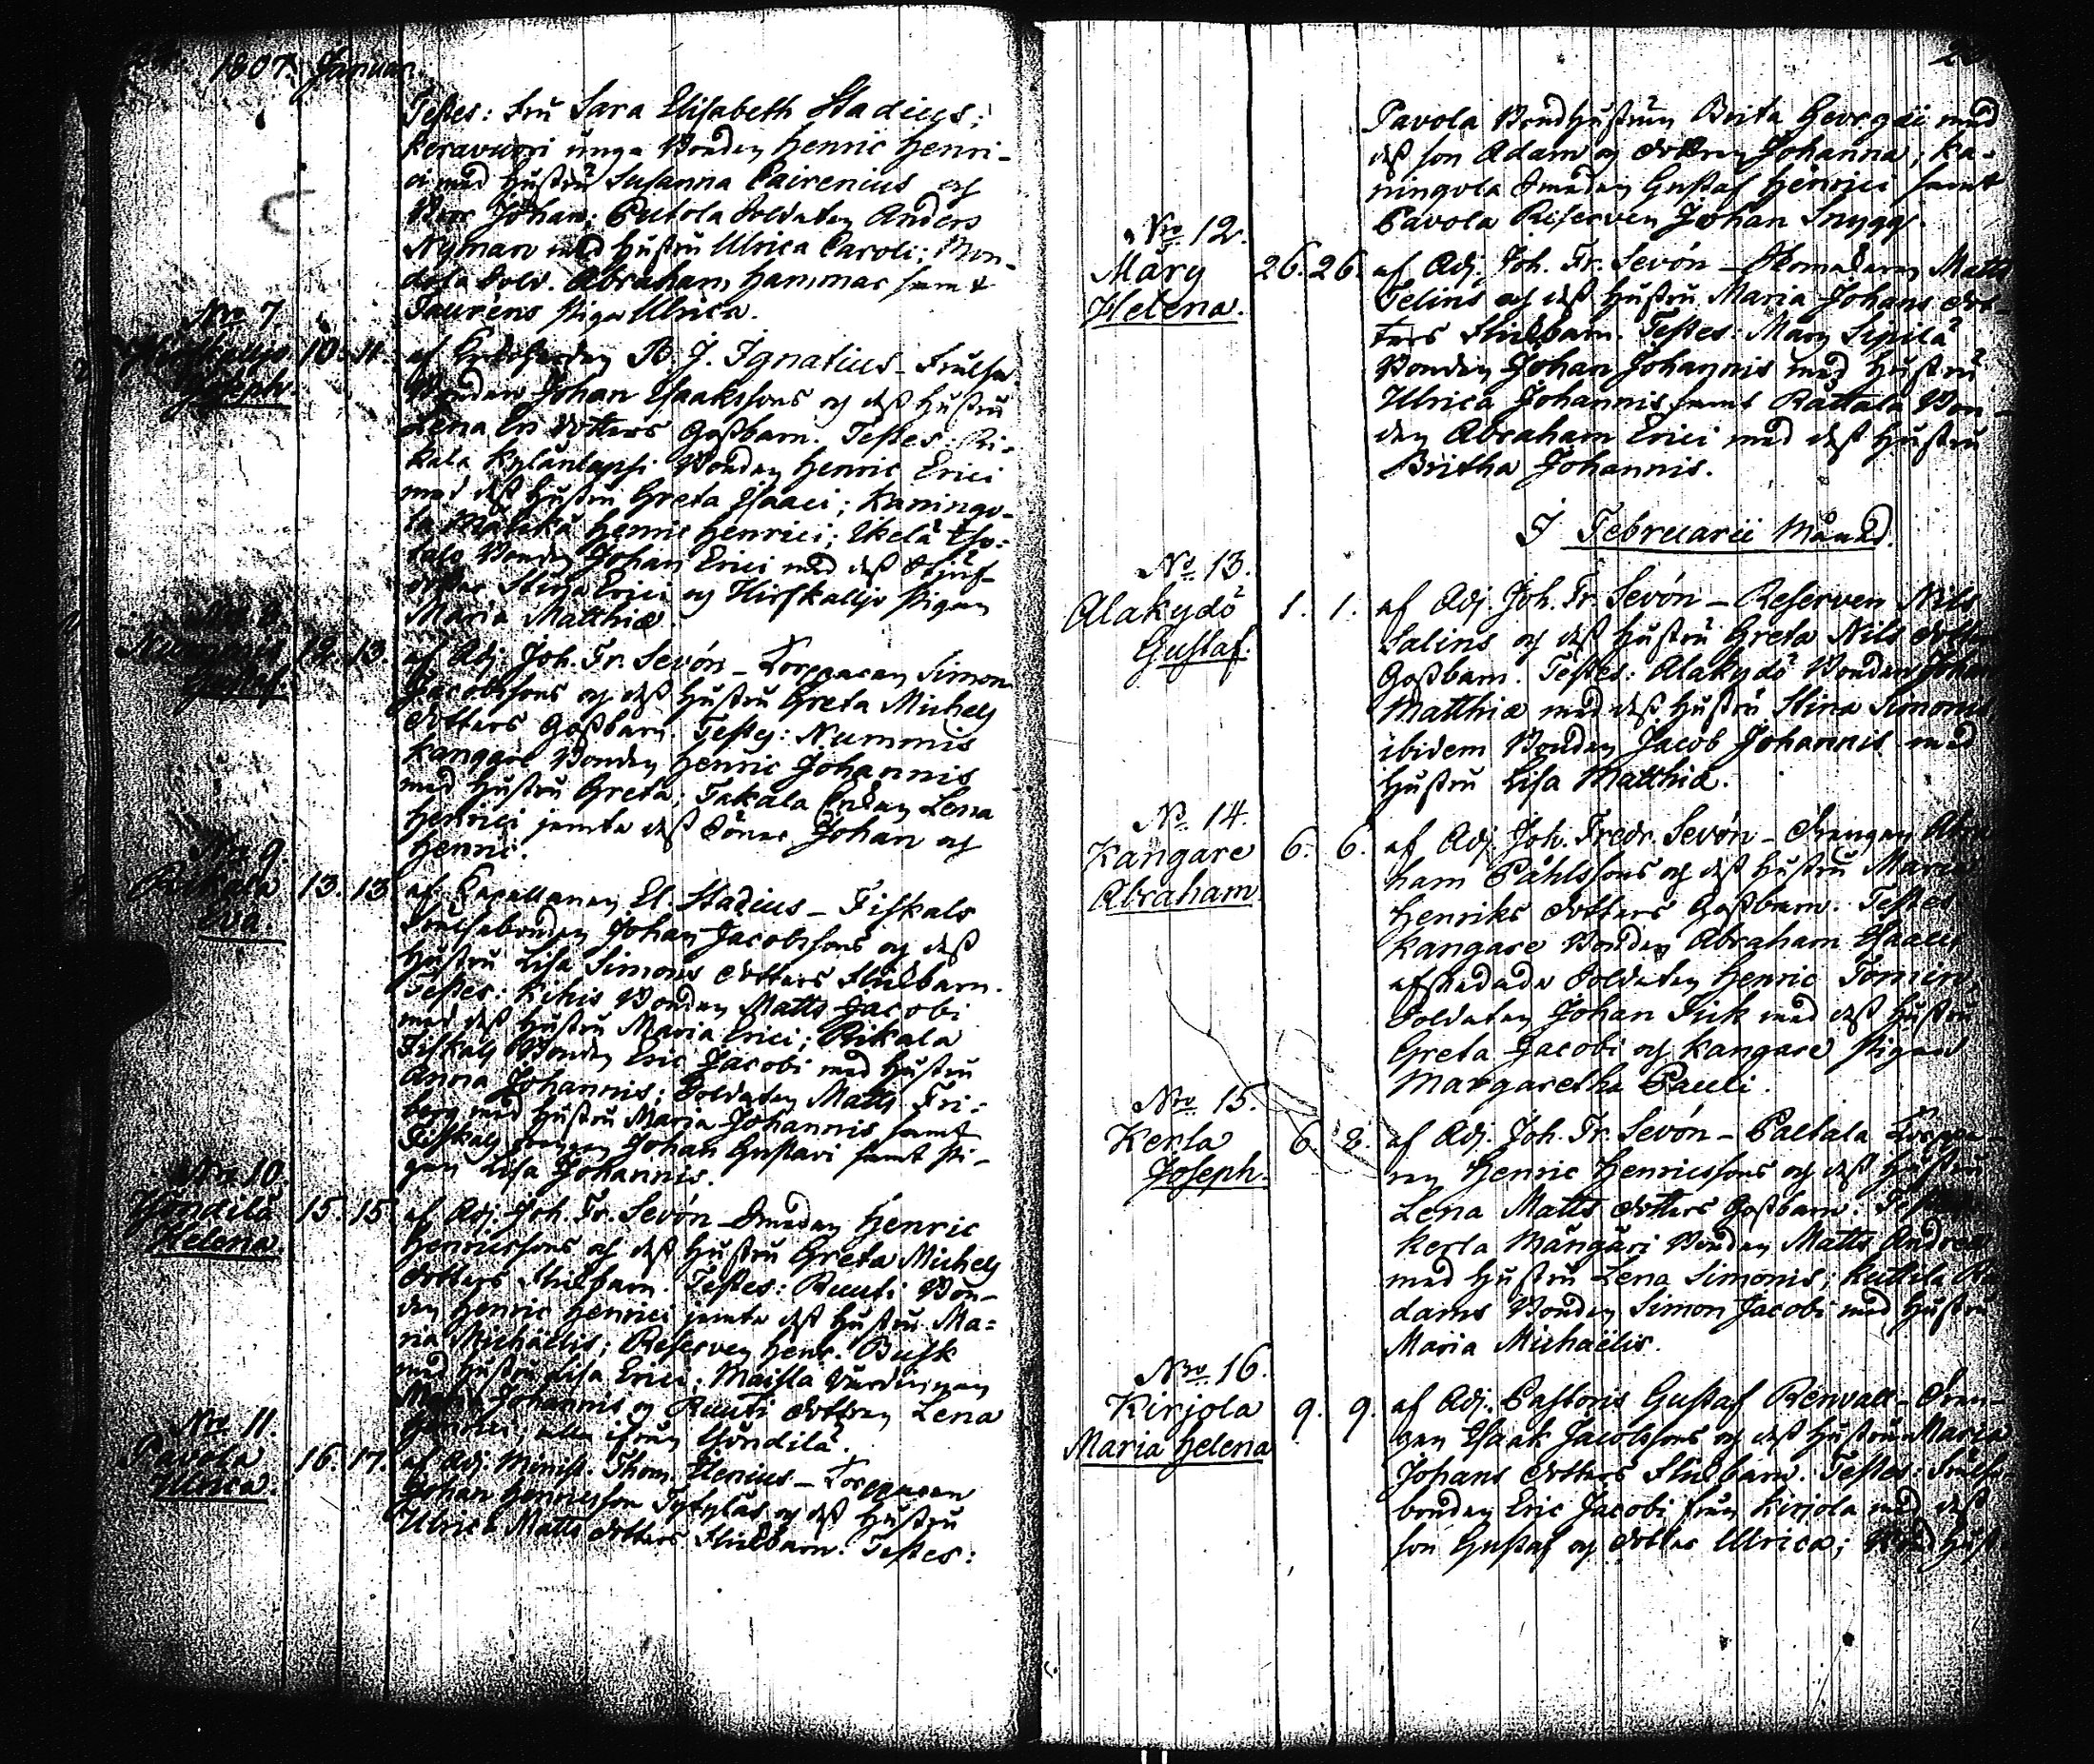 1807. Januar.
Testes: Fru Sara Elisabeth Stadius;
Keravuori unga Bonden Henric Henri-
ci med Hustru Susanna Cairenius och
Bror Johan; Putola Soldaten Anders
Nyman med Hustru Ulrica Caroli; Mon-
Sold. Abraham Hammar samt
Taurens Pigan Ulrica.
No 7.
Hirskalljo 10. 11. af B. J. Ignatius - Frälse
Joseph. Bonden Johan Isaakssons och dess Hustru
Lena Eri dotters Gossbarn. Testes: Ri-
kala Bonden Henric Erici
med dess Hustru Greta Isaaci; Kaningo-
la Henric Henrici; Ikelä
Bonden Johan Erici med dess
Stina Erici och Hirskalljo Pigan
Maria Matthiæ.
No 8.
Nummis 12. 13. af Adj. Joh. Fr. Sevón - Torpparen Simon
Gustaf. Jacobssons och dess Hustru Greta Michels
dotters Gossbarn. Testes: Nummis
Kangare Bonden Henric Johannis
med Hustru Greta; Takala Enkan Lena
Henrici jemte dess Söner Johan och
Henric.
No 9.
Rikala 13. 13 af Capellanen El. Stadius - Fiskals
Eva. Frälsebonden Johan Jacobssons och dess
Hustru Lisa Simons dotters Flickbarn.
Testes: Kihis Bonden Matts Jacobi
med dess Hustru Maria Erici; Rikala
Fiskals Bonden Eric Jacobi med Hustru
Anna Johannis; Soldaten Matts Fri-
berg med Hustru Maria Johannis samt
Fiskals drengen Johan Gustavi samt Pi-
gan Lisa Johannis.
No 10.
Yöndilä 15. 15 af Adj. Joh. Fr. Sevón - Smeden Henric
Helena. Henricssons och dess Hustru Greta Michels
dotters Flickbarn. Testes: Ruuti Bon-
den Henric Henrici jemte dess Hustru Ma-
ria Michaëlis; Reserven Henr. Busk
med Hustru Lisa Erici; Maisla
Matts Johannis och Ruuti dottren Lena
Henrici, alla ifrån Yöndilä.
No 11.
Pavola 16. 17. af Adj. Minist. Thom. - Torpparen
Ulrica. Johan Henricsson och dess Hustru
Ulrica Matts dotters Flickbarn. Testes:
Pavola Bondhustrun Brita Georgii med
dess son Adam och dottren Johanna; Ka-
ningola Smeden Gustaf Henrici samt
Pavola Reserven Johan Snygg.
No 12.
Märy 26. 26. af Adj. Joh. Fr. Sevón - Skomakaren Matts
Helena. Felins och dess Hustru Maria Johans dot-
ters Flickbarn. Testes: Märy Sipilä
Bonden Johan Johannis med Hustru
Ulrica Johannis samt Rattala Bon-
den Abraham Erici med dess Hustru
Britha Johannis.
I Februarii Månad.
No 13.
Alakydö 1. 1. af Adj. Joh. Fr. Sevón - Reserven Nils
Gustaf. Salins och dess Hustru Greta Nils dotters
Gossbarn. Testes: Alakydö Bonden Johan
Matthiæ med dess Hustru Stina Simonis
ibidem Bonden Jacob Johannis med
Hustru Lisa Matthiæ.
No 14.
Kangare 6. 6. af Adj. Joh. Fredr. Sevón - Drengen Abra
Abraham. ham Påhlssons och dess Hustru Maria
Henriks dotters Gossbarn. Testes
Kangare Bonden Abraham Isaaci
afskedade Soldaten Henric
Soldaten Johan med dess Hustru
Greta Jacobi och Kangare Pigan
Margaretha Pauli.
No 15.
Kerla 6. 8. af Adj. Joh. Fr. Sevón - Torppa-
Joseph. ren Henric Henricssons och dess Hustru
Lena Matts dotters Gossbarn. Testes
Kerla Bonden Matts Andreæ
med Hustru Lena Simonis; Kuttila
dams Bonden Simon Jacobi med Hustru
Maria Michaëlis.
No 16.
Kirjola 9. 9. af Adj. Pastoris Gustaf Renvall - Dren-
Maria Helena gen Isaak Jacobssons och dess Hustru Maria
Johans dotters Flickbarn. Testes: Frälse
bonden Eric Jacobi från Kirjola med dess
son Gustaf och dotter Ulrica;